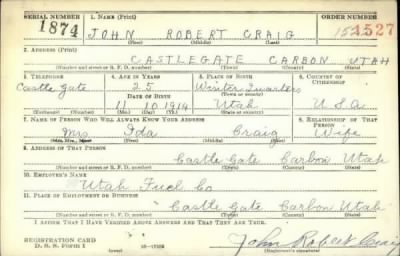 SERIAL NUMBER 1. NAME (Print) ORDER NUMBER
1874 JOHN ROBERT CRAIG 1527
(First) (Middle) (Last)
2. ADDRESS (Print)
CASTLEGATE CARBON UTAH
(Number and street or R. F. D. number) (Town) (County) (State)
3. TELEPHONE 4. AGE IN YEARS 5. PLACE OF BIRTH 6. COUNTRY OF CITIZENSHIP
Castle Gate 25 Winter Quarters
DATE OF BIRTH (Town or county)
11 10 1914 Utah U.S.A
(Exchange) (Number) (Mo.) (Day) (Yr.) (State or country)
7. NAME OF PERSON WHO WILL ALWAYS KNOW YOUR ADDRESS 8. RELATIONSHIP OF THAT PERSON
Mrs Ida Craig Wife
(Mr., Mrs., Miss) (First) (Middle) (Last)
9. ADDRESS OF THAT PERSON
Castle Gate Carbon Utah
(Number and street or R. F. D. number) (Town) (County) (State)
10. EMPLOYER'S NAME
Utah Fuel Co
11. PLACE OF EMPLOYMENT OR BUSINESS
Castle Gate Carbon Utah
(Number and street or R. F. D. number) (Town) (County) (State)
I AFFIRM THAT I HAVE VERIFIED ABOVE ANSWERS AND THAT THEY ARE TRUE.
REGISTRATION CARD
D. S. S. FORM 1 (over) John Robert Craig
(Registrant's signature)